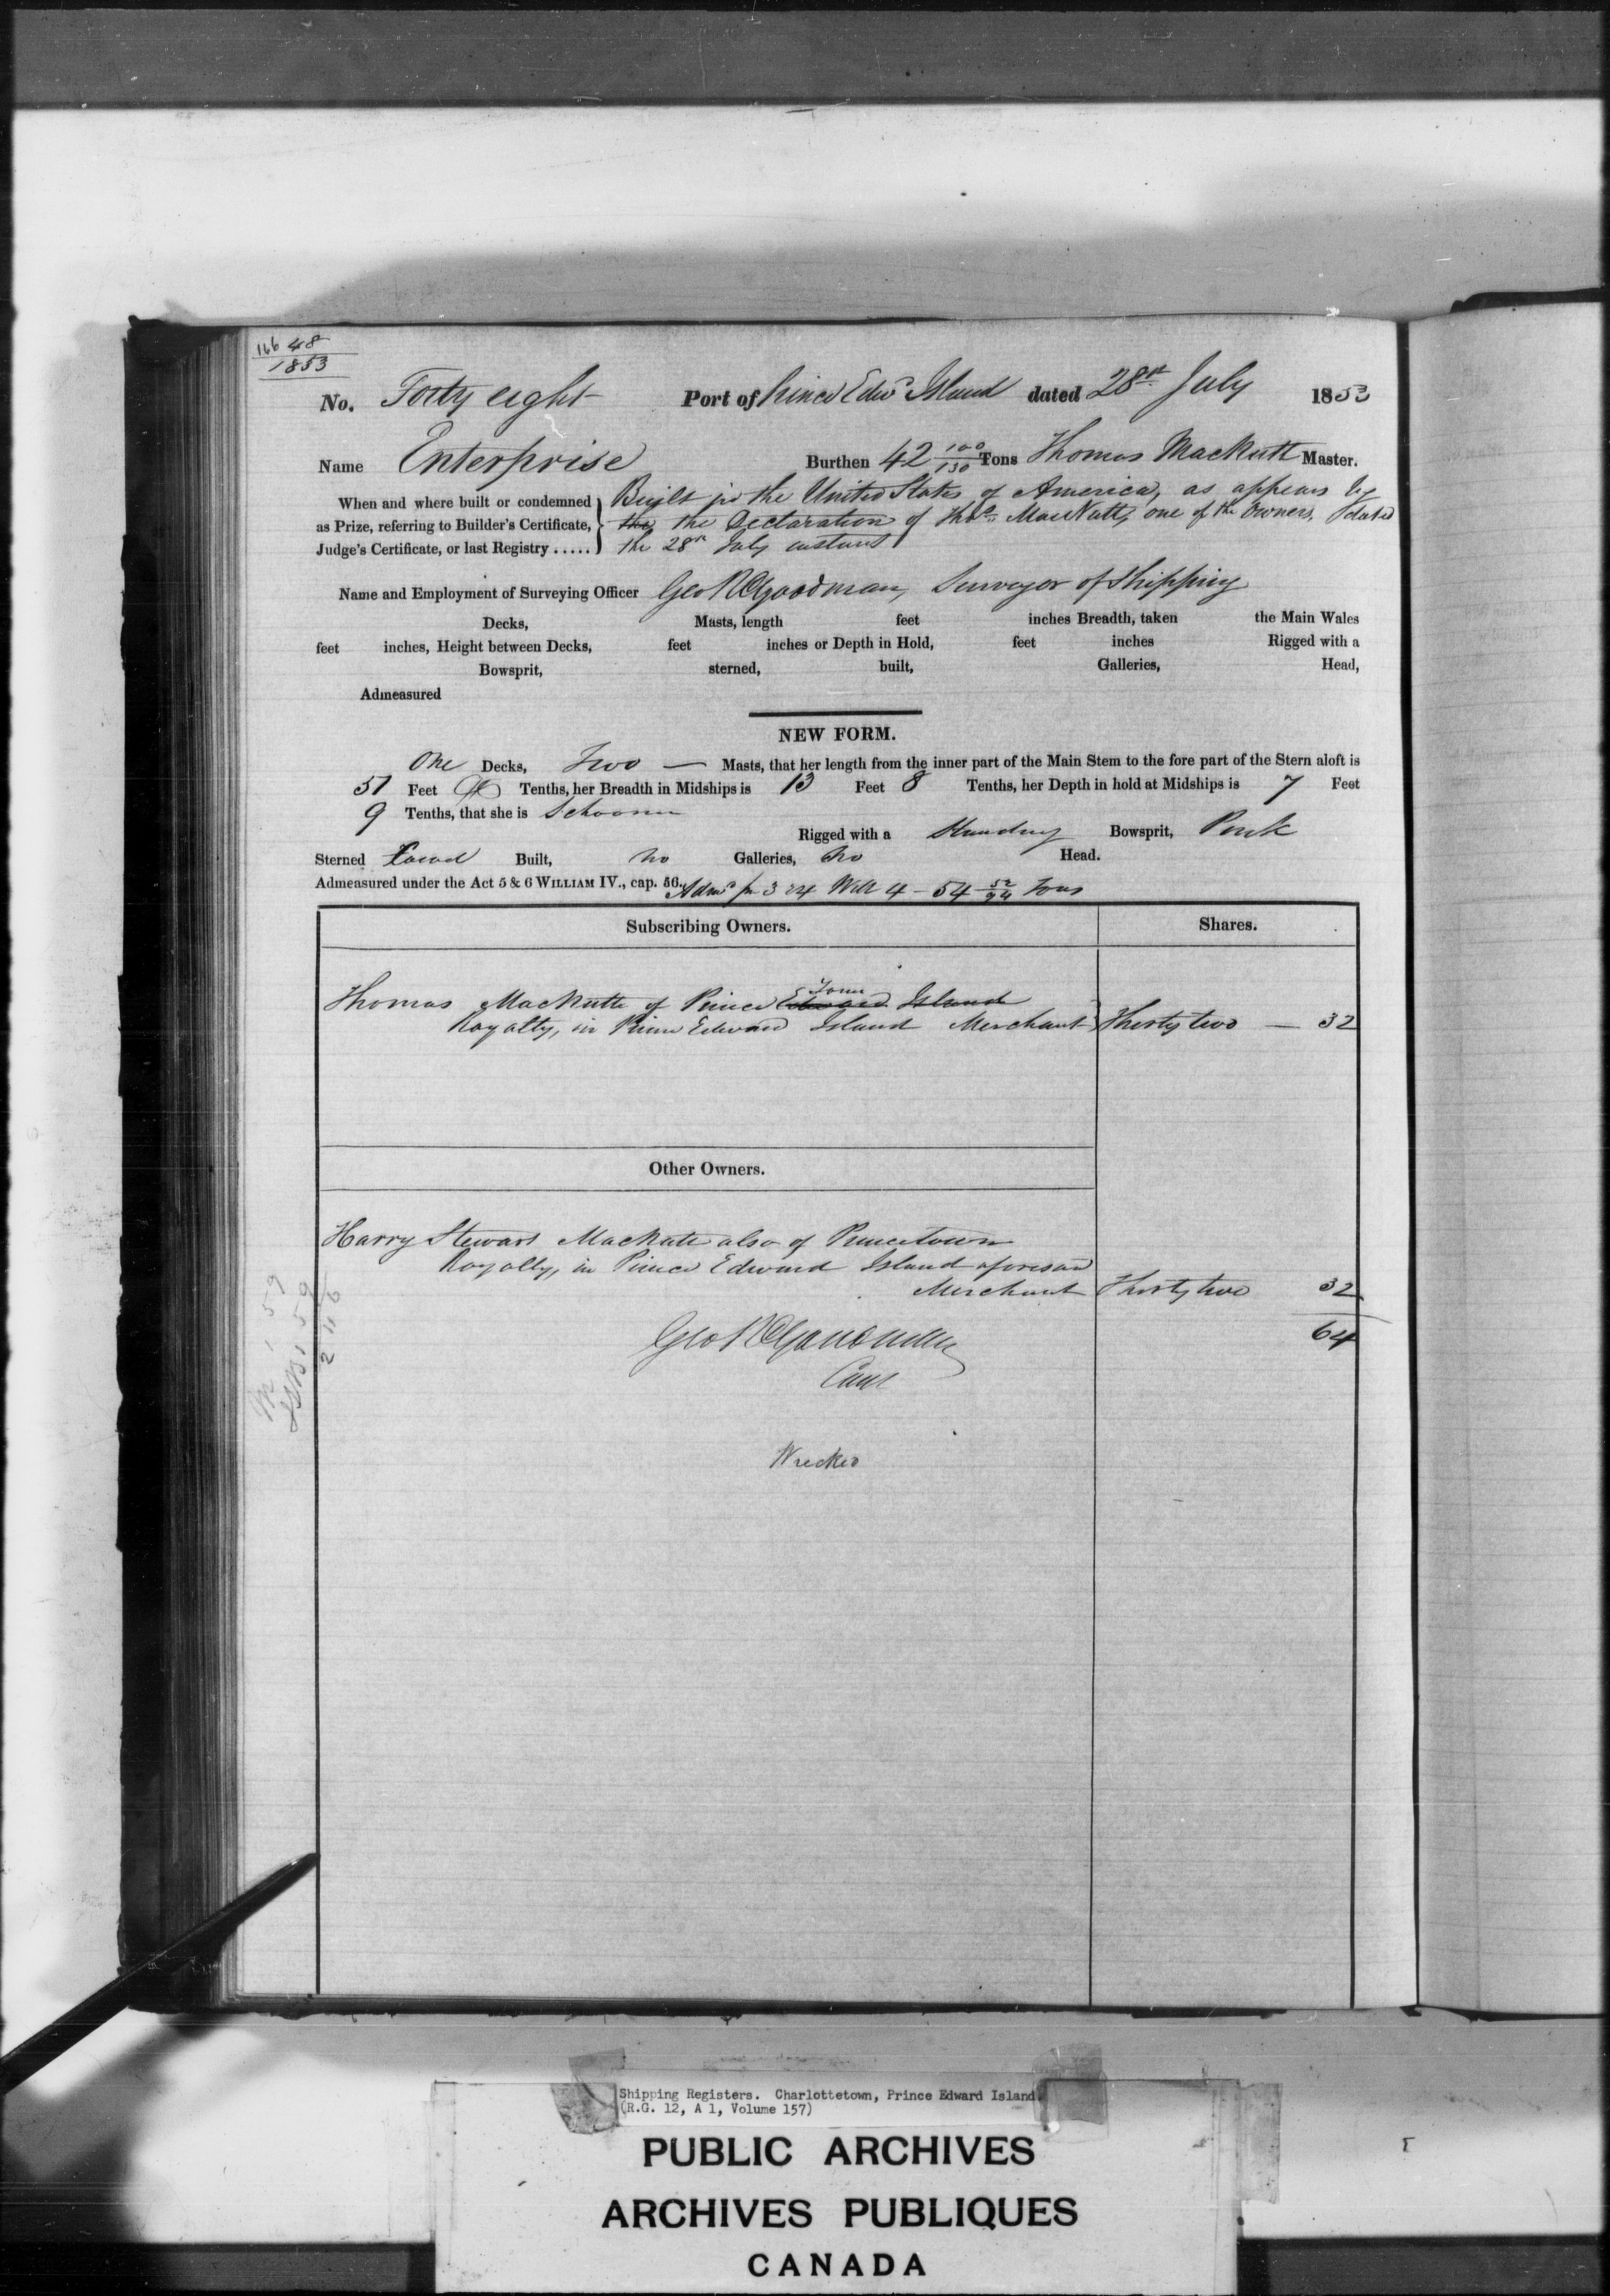 166 48
1853
No. Forty eight Port of Prince Edwd Island dated 28th July 1853
Name Enterprise Burthen 42 100/130 Tons Thomas MacNutt Master.
When and where built or condemned as Prize, referring to Builder's Certificate, Judge's Certificate, or last Registry .....
Built in the United States of America, as appears by
the the Declaration of Thos. MacNutt, one of the Owners, dated
the 28th July instant
Name and Employment of Surveying Officer Geo R Goodman, Surveyor of Shipping
Decks, Masts, length feet inches Breadth, taken the Main Wales
feet inches, Height between Decks, feet inches or Depth in Hold, feet inches Rigged with a
Bowsprit, sterned, built, Galleries, Head,
Admeasured
NEW FORM.
One Decks, Two — Masts, that her length from the inner part of the Main Stem to the fore part of the Stern aloft is
51 Feet Tenths, her Breadth in Midships is 13 Feet 8 Tenths, her Depth in hold at Midships is 7 Feet
9 Tenths, that she is Schooner
Rigged with a Standing Bowsprit, Pink
Sterned Carvel Built, no Galleries, no Head.
Admeasured under the Act 5 & 6 WILLIAM IV., cap. 56. 3 & 4 Will 4 - 54 52/94 Tons
Subscribing Owners. Shares.
Town
Thomas MacNutt of Prince Edward Island
Royalty, in Prince Edward Island Merchant Thirty two — 32
Other Owners.
Harry Stewart MacNutt also of Princetown
Royalty, in Prince Edward Island aforesaid
Merchant Thirty two 32
64
Geo R Goodman
Wrecked
Shipping Registers. Charlottetown, Prince Edward Island
(R.G. 12, A 1, Volume 157)
PUBLIC ARCHIVES
ARCHIVES PUBLIQUES
CANADA